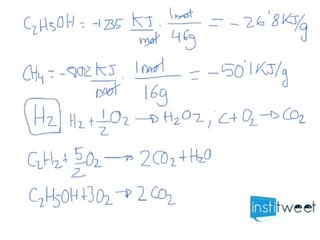 C₂H₅OH = -1235 KJ/mol · 1mol/46g = -26'8 KJ/g
CH₄ = -802 KJ/mol · 1mol/16g = -50'1 KJ/g
H₂ H₂ + 1/2 O₂ → H₂O₂; C + O₂ → CO₂
C₂H₂ + 5/2 O₂ → 2CO₂ + H₂O
C₂H₅OH + 3O₂ → 2CO₂
institweet